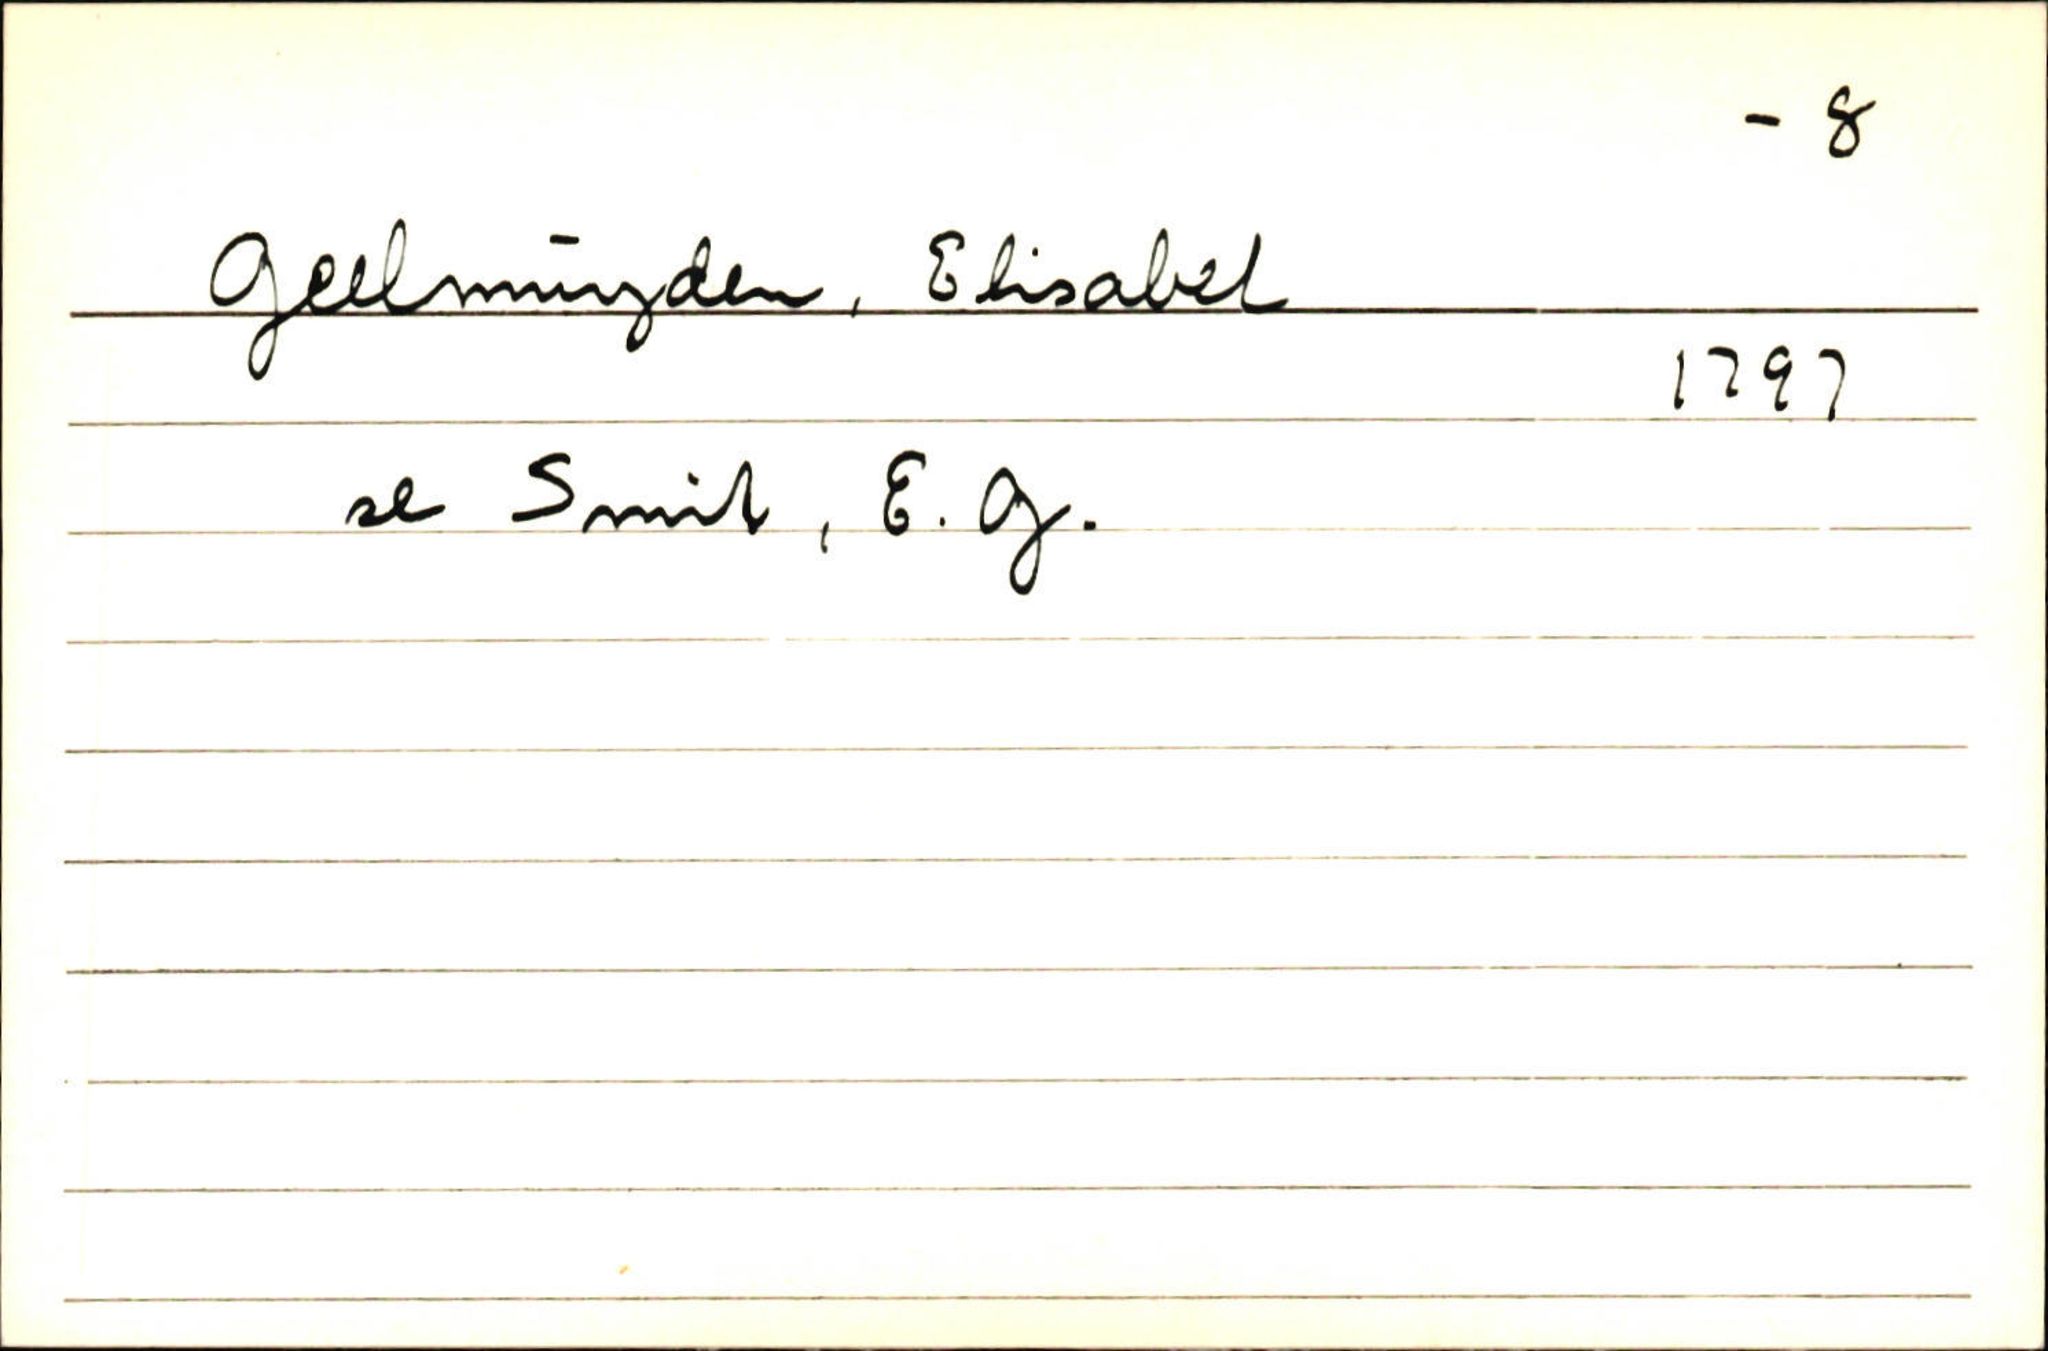 - 8
Geelmūyden, Elisabet
1797
se Smit, E. G.